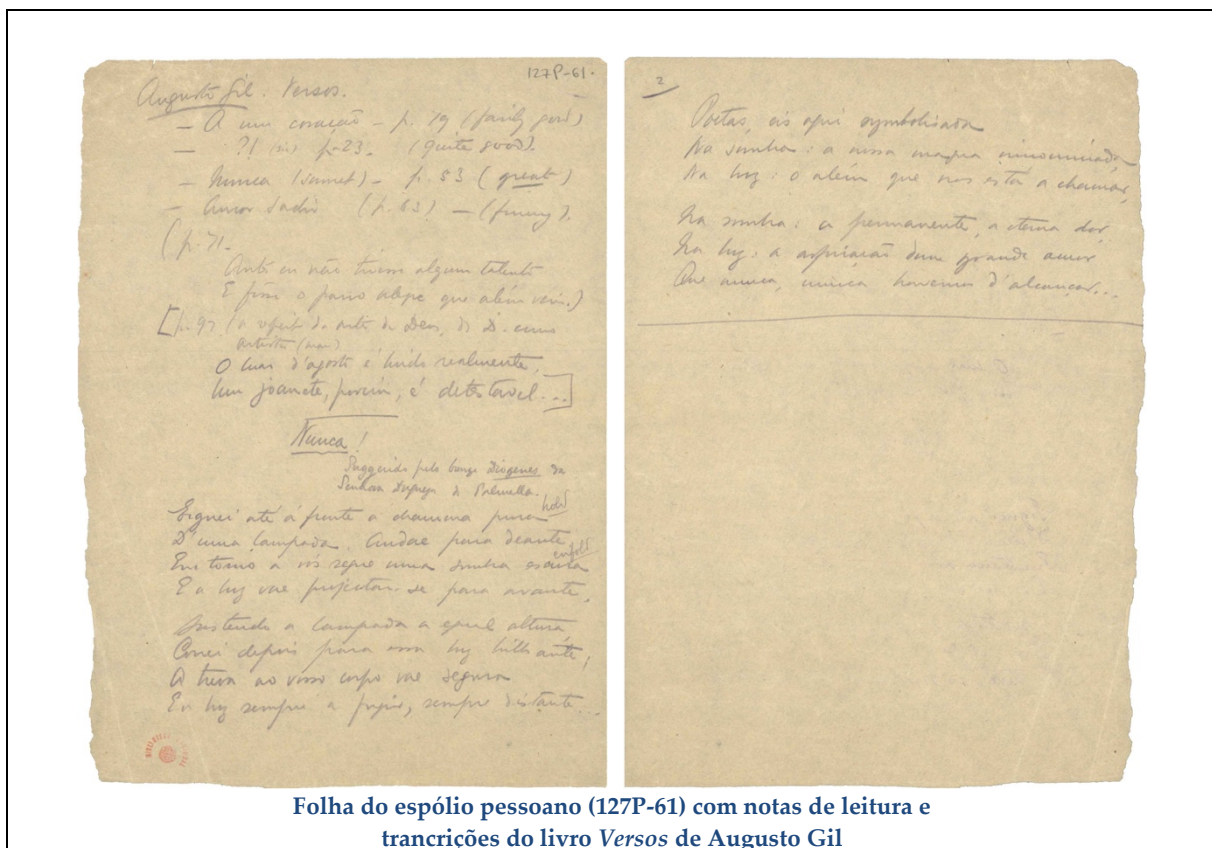 127P-61.
Augusto Gil. Versos.
— A um coração — p. 19 (fairly good)
— ?! (sic) p. 23. (quite good).
— Nunca (sonnet) — p. 53 (great)
— Amor Sadio (p. 63) — (funny).
(p. 71.
Antes eu não tivesse algum talento
E fosse o parvo alegre que além vem.)
[p. 97 (a respeito da arte de Deus, de D. como
artista (mau)
O luar d'agosto é lindo realmente,
Um joanete, porém, é detestavel...]
Nunca!
Suggerido pelo bronze Diogenes da
Senhora Duqueza de Palmella.
Erguei até á frente a chamma pura
hold
D'uma lampada. Andae para deante
Em torno a vós segue uma sombra escura
enfold
E a luz vae projectar-se para avante.
Sustendo a lampada a egual altura
Correi depois para essa luz brilhante;
A treva ao vosso corpo vae segura
E a luz sempre a fugir, sempre distante...
2
Poetas, eis aqui symbolisada
Na sombra: a nossa magua
Na luz: o além que nos está a chamar,
Na sombra: a permanente, a eterna dor,
Na luz: a aspiração dum grande amor
Que nunca, nunca havemos d'alcançar...
Folha do espólio pessoano (127P-61) com notas de leitura e
trancrições do livro Versos de Augusto Gil